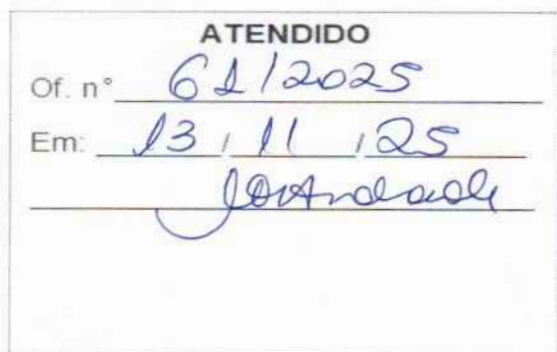 ATENDIDO
Of. n° 61/2025
Em: 13 / 11 / 25